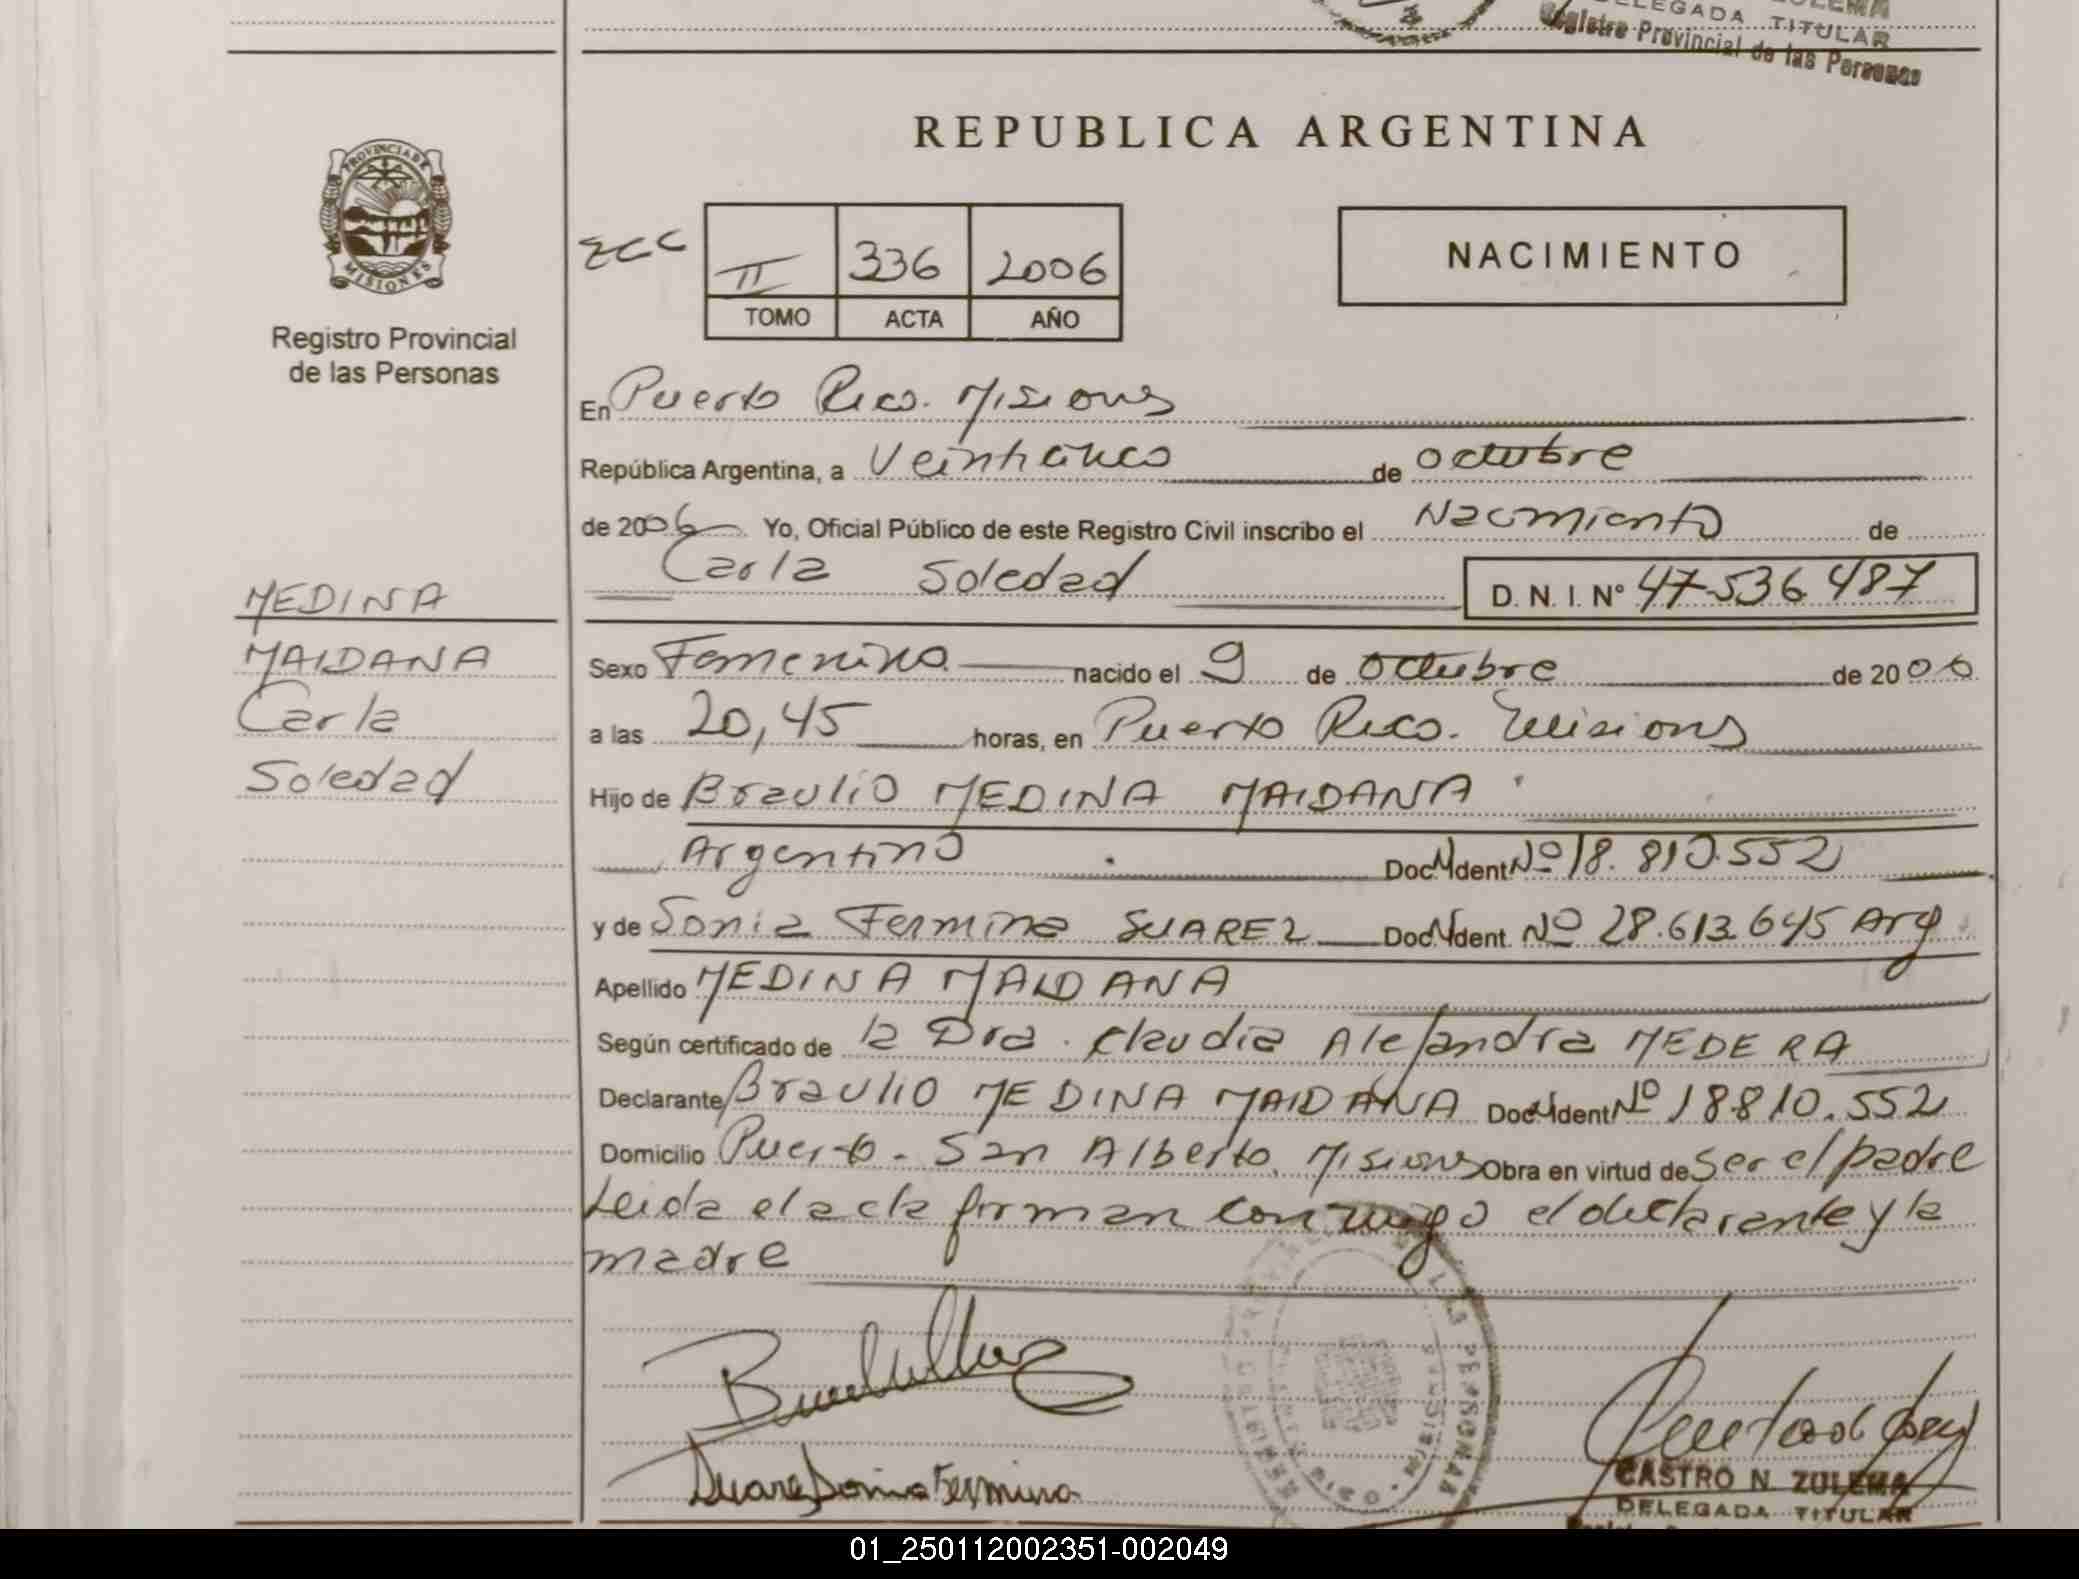 DELEGADA TITULAR
Registro Provincial de las Personas
PROVINCIA DE
MISIONES
Registro Provincial
de las Personas
REPUBLICA ARGENTINA
II 336 2006
TOMO ACTA AÑO
NACIMIENTO
En Puerto Rico. Misiones
República Argentina, a Veinticinco de octubre
de 2006 Yo, Oficial Público de este Registro Civil inscribo el Nacimiento de
Carla Soledad D. N. I. N° 47.536.487
MEDINA
MAIDANA
Carla
Soledad
Sexo Femenino nacido el 9 de octubre de 2006
a las 20,45 horas, en Puerto Rico. Misiones
Hijo de Braulio MEDINA MAIDANA
Argentino Doc. Ident Nº 18.810.552
y de Sonia Fermina SUAREZ Doc. Ident. Nº 28.613.645 Arg
Apellido MEDINA MAIDANA
Según certificado de la Dra. Claudia Alejandra MEDERA
Declarante Braulio MEDINA MAIDANA Doc. Ident Nº 18.810.552
Domicilio Puerto San Alberto. Misiones Obra en virtud de Ser el padre
Leida el acta firman conmigo el declarante y la
madre
Suarez Sonia Fermina
CASTRO N. ZULEMA
DELEGADA TITULAR
01_250112002351-002049